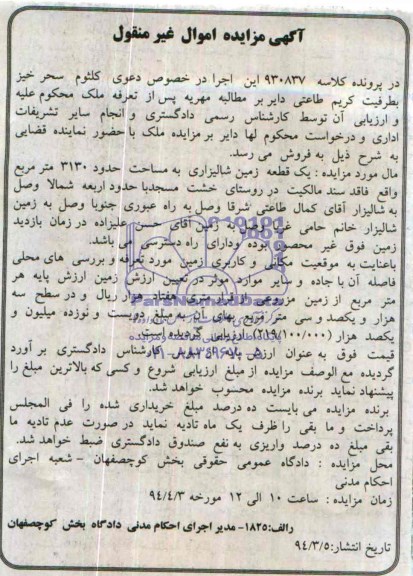 آگهی مزایده اموال غیر منقول
در پرونده کلاسه ۹۳۰۸۳۷ این اجرا در خصوص دعوی کلثوم سحر خیز
بطرفیت کریم طاعتی دایر بر مطالبه مهریه پس از تعرفه ملک محکوم علیه
و ارزیابی آن توسط کارشناس رسمی دادگستری و انجام سایر تشریفات
اداری و درخواست محکوم لها دایر بر مزایده ملک با حضور نماینده قضایی
به شرح ذیل به فروش می رسد.
مال مورد مزایده : یک قطعه زمین شالیزاری به مساحت حدود ۳۱۳۰ متر مربع
واقع فاقد سند مالکیت در روستای خشت مسجد با حدود اربعه شمالا وصل
به شالیزار آقای کمال طاعتی شرقا وصل به راه عبوری جنوبا وصل به زمین
شالیزار خانم حامی غربا وصل به زمین آقای حسن علیزاده در زمان بازدید
زمین فوق غیر محصور بوده ودارای راه دسترسی می باشد.
باعنایت به موقعیت مکانی و کاربری زمین مورد تعرفه و بررسی های محلی
فاصله آن با جاده و سایر موارد موثر در تعیین ارزش زمین ارزش پایه هر
متر مربع از زمین مزروعی از قرار متری هفتاد هزار ریال و در سطح سه
هزار و یکصد و سی متر مربع بهای آن به مبلغ دویست و نوزده میلیون و
یکصد هزار (۲۱۹/۱۰۰/۰۰۰) ارزیابی گردیده است.
قیمت فوق به عنوان ارزش پایه از سوی کارشناس دادگستری بر آورد
گردیده مع الوصف مزایده از مبلغ ارزیابی شروع و کسی که بالاترین مبلغ را
پیشنهاد نماید برنده مزایده محسوب خواهد شد.
برنده مزایده می بایست ده درصد مبلغ خریداری شده را فی المجلس
پرداخت و ما بقی را ظرف یک ماه تادیه نماید در صورت عدم تادیه ما
بقی مبلغ ده درصد واریزی به نفع صندوق دادگستری ضبط خواهد شد.
محل مزایده : دادگاه عمومی حقوقی بخش کوچصفهان – شعبه اجرای
احکام مدنی
زمان مزایده : ساعت ۱۰ الی ۱۲ مورخه ۹۴/۴/۳
رالف:۱۸۲۵- مدیر اجرای احکام مدنی دادگاه بخش کوچصفهان
تاریخ انتشار:۹۴/۳/۵